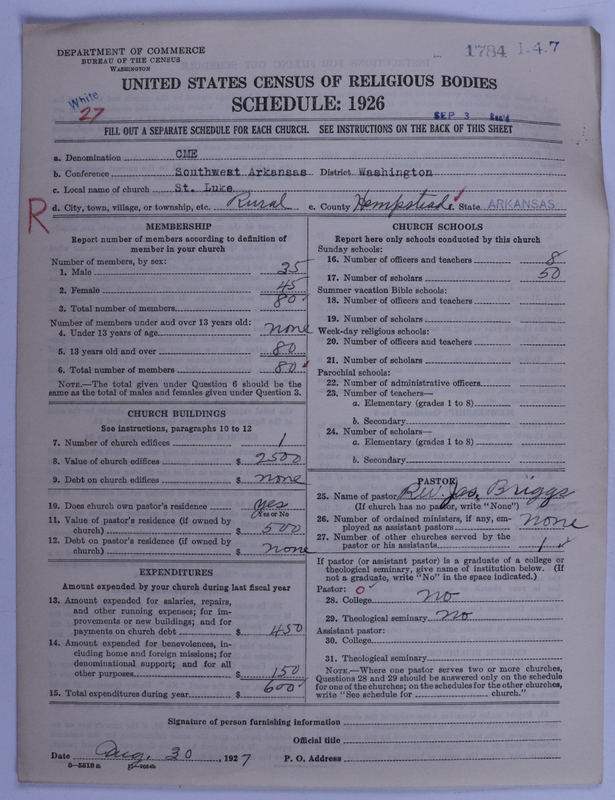 DEPARTMENT OF COMMERCE
BUREAU OF THE CENSUS
WASHINGTON
1784 1-4-7
UNITED STATES CENSUS OF RELIGIOUS BODIES
SCHEDULE: 1926
White
27
SEP 3 Rec'd
FILL OUT A SEPARATE SCHEDULE FOR EACH CHURCH. SEE INSTRUCTIONS ON THE BACK OF THIS SHEET
a. Denomination CME
b. Conference Southwest Arkansas District Washington
c. Local name of church St. Luke
R
d. City, town, village, or township, etc. Rural e. County Hempstead f. State ARKANSAS
MEMBERSHIP
Report number of members according to definition of
member in your church
Number of members, by sex:
1. Male 35
2. Female 45
3. Total number of members 80
Number of members under and over 13 years old:
4. Under 13 years of age none
5. 13 years old and over 80
6. Total number of members 80
NOTE.—The total given under Question 6 should be the
same as the total of males and females given under Question 3.
CHURCH BUILDINGS
See instructions, paragraphs 10 to 12
7. Number of church edifices 1
8. Value of church edifices $ 2500
9. Debt on church edifices $ none
10. Does church own pastor's residence yes
(Yes or No
11. Value of pastor's residence (if owned by
church) $ 500
12. Debt on pastor's residence (if owned by
church) $ none
EXPENDITURES
Amount expended by your church during last fiscal year
13. Amount expended for salaries, repairs,
and other running expenses; for im-
provements or new buildings; and for
payments on church debt $ 450
14. Amount expended for benevolences, in-
cluding home and foreign missions; for
denominational support; and for all
other purposes $ 150
15. Total expenditures during year $ 600
CHURCH SCHOOLS
Report here only schools conducted by this church
Sunday schools:
16. Number of officers and teachers 8
17. Number of scholars 50
Summer vacation Bible schools:
18. Number of officers and teachers
19. Number of scholars
Week-day religious schools:
20. Number of officers and teachers
21. Number of scholars
Parochial schools:
22. Number of administrative officers
23. Number of teachers—
a. Elementary (grades 1 to 8)
b. Secondary
24. Number of scholars—
a. Elementary (grades 1 to 8)
b. Secondary
PASTOR
25. Name of pastor Rev. Jas. Briggs
(If church has no pastor, write "None")
26. Number of ordained ministers, if any, em-
ployed as assistant pastors none
27. Number of other churches served by the
pastor or his assistants 1
If pastor (or assistant pastor) is a graduate of a college or
theological seminary, give name of institution below. (If
not a graduate, write "No" in the space indicated.)
Pastor: O
28. College no
29. Theological seminary no
Assistant pastor:
30. College
31. Theological seminary
NOTE.—Where one pastor serves two or more churches,
Questions 28 and 29 should be answered only on the schedule
for one of the churches; on the schedules for the other churches,
write "See schedule for church."
Signature of person furnishing information
Official title
Date Aug. 30, 1927 P. O. Address